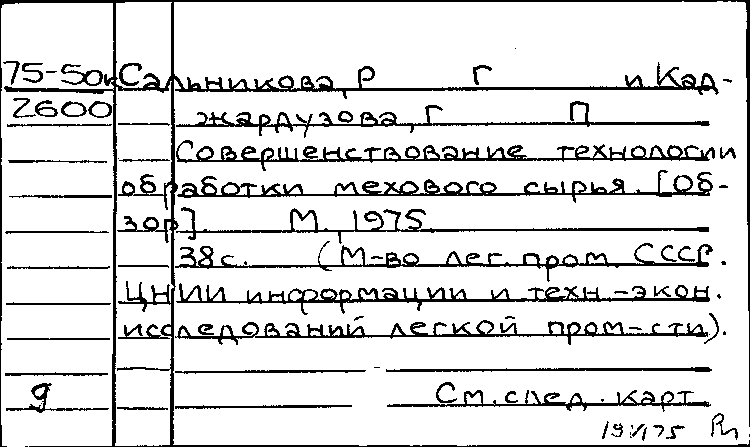 75-50к Сальникова, Р Г и Кад-
2600 жардузова, Г П
Совершенствование технологии
обработки мехового сырья. [Об-
зор]. М., 1975.
38с. (М-во лег. пром. СССР.
ЦНИИ информации и техн-экон.
исследований легкой пром-сти).
g См. след. карт